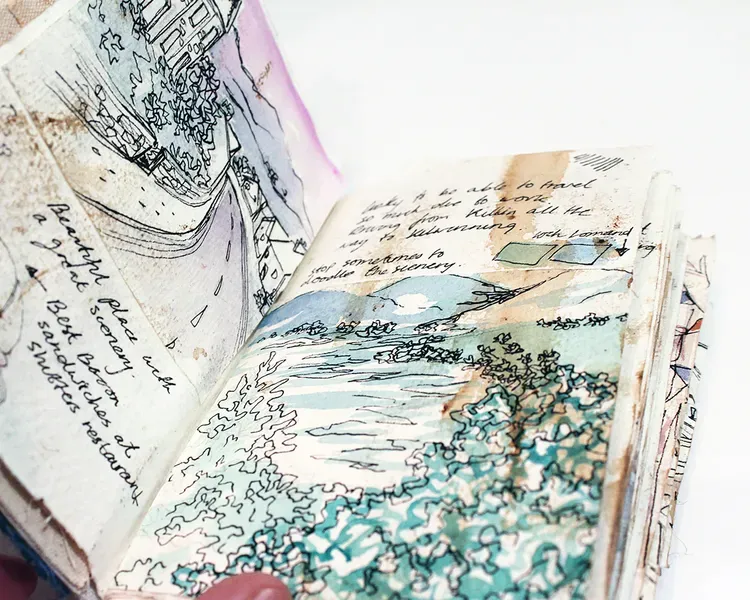 Beautiful place with
a great scenery.
Best Bacon
sandwitches at
shutters restaurant
lucky to be able to travel
so much due to work
Driving from Killin all the
way to Kilwinning
Loch Lomond
stop sometimes to
doodle the scenery.